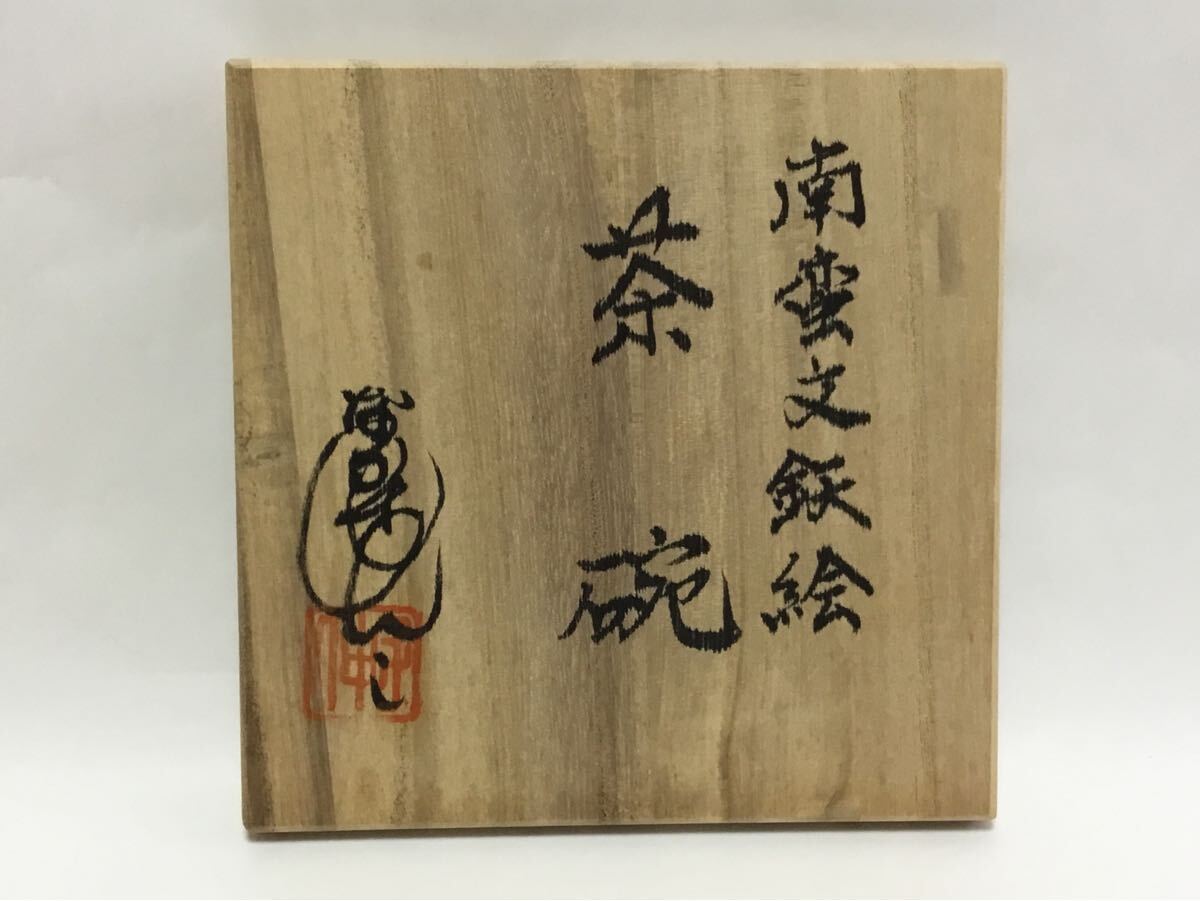 南蛮文鉄絵
茶碗